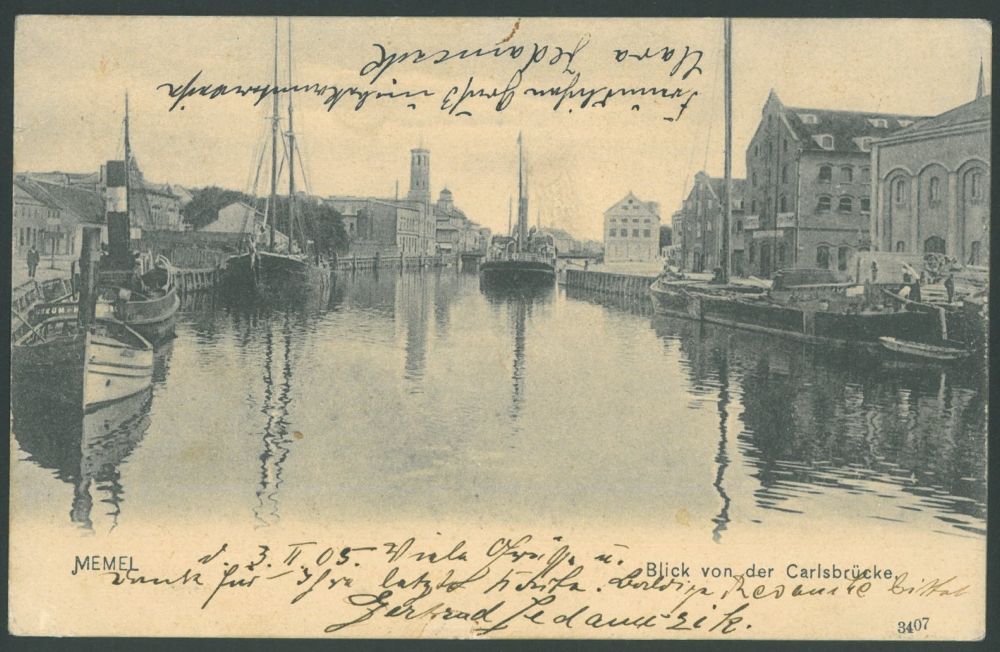 Freundlichen Gruß unbekannterweise
Clara Jedamczik
MEMEL
d. 3. II. 05. Viele Grüße u.
Dank für Ihre letzte Karte. Baldige Revanche bittet
Gertrud Jedamczik.
Blick von der Carlsbrücke.
3407